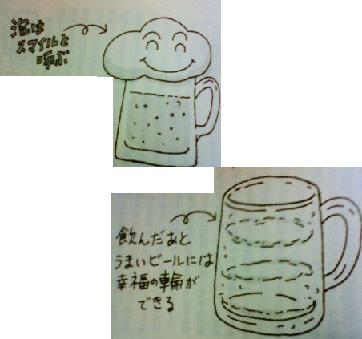 泡は
スマイルと
呼ぶ
飲んだあと
うまいビールには
幸福の輪が
できる